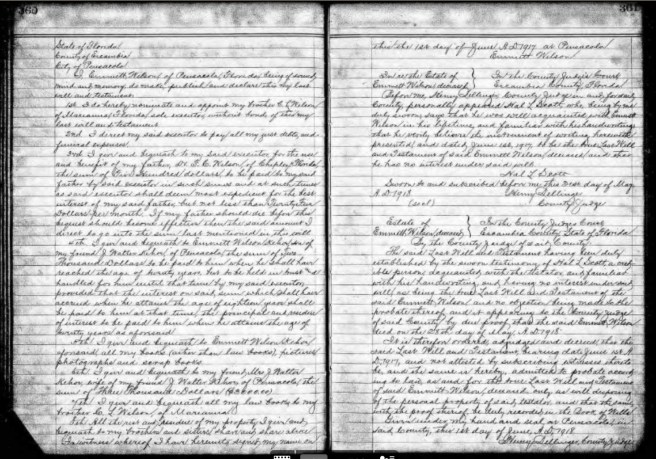 360
State of Florida
County of Escambia
City of Pensacola
I, Emmett Wilson, of Pensacola, Florida, being of sound
mind and memory do make, publish and declare this my last
will and testament.
1st. I do hereby nominate and appoint my brother C. L. Wilson
of Marianna, Florida, sole executor, without bond, of this my
last will and testament.
2nd. I direct my said executor to pay all my just debts and
funeral expenses.
3rd. I give and bequeath to my said executor for the use
and benefit of my father, Dr. F. C. Wilson of Chipley, Florida,
the sum of Hundred dollars to be paid to my said
father by said executor in such sums and at such times
as said executor shall deem most expedient for the best
interest of my said father, but not less than
Dollars per month. If my father should die before this
bequest should become effective then the said amount I
direct to go into the sum last mentioned in this will
4th. I give and bequeath to Emmett Wilson Kehoe, son of
my friend J. Walter Kehoe, of Pensacola, the sum of
Thousand Dollars to be paid to him when he shall have
reached the age of years, but to be held in trust &
handled for him until that time by my said executor,
provided that the interest on said sum which shall have
accrued when he attains the age of eighteen years shall
be paid to him at that time, the principal and residue
of interest to be paid to him when he attains the age of
years as aforesaid
5th. I give and bequeath to Emmett Wilson Kehoe
aforesaid, all my books (other than law books), pictures
photographs and scrap books
6th. I give and bequeath to my friend, Mrs. J. Walter
Kehoe, wife of my friend J. Walter Kehoe of Pensacola, the
sum of Three Thousand Dollars
7th. I give and bequeath all my law books to my
brother C. L. Wilson of Marianna
8th. All the rest and residue of my property I give and
bequeath to my brothers and sisters, share and share alike
In witness whereof I have hereunto signed my name on
361
this the 1st day of June A.D. 1917 at Pensacola
Emmett Wilson
In re the Estate of In the County Judge's Court
Emmett Wilson, deceased Escambia County, Florida
Before me, Henry Bellinger, County Judge in and for said
County, personally appeared Hal L. Scott, who being by me
duly sworn says that he was well acquainted with Emmett
Wilson in his lifetime, and familiar with his handwriting
that he verily believes the instrument of writing herewith
presented, and dated June 1st, 1917, to be the true Last Will
and Testament of said Emmett Wilson, deceased, and that
he has no interest under said will
Hal L. Scott
Sworn to and subscribed before me this day of May
A.D. 1918. Henry Bellinger
(seal) County Judge
Estate of In the County Judge's Court
Emmett Wilson, deceased Escambia County, State of Florida
By the County Judge of said County
The said Last Will and Testament having been duly
established by the sworn testimony of Hal L. Scott a
person acquainted with the testator, and familiar
with his handwriting, and having no interest under said
will, as being the true Last Will and Testament of the
said Emmett Wilson and no objection being made to the
probate thereof, and it appearing to the County Judge
of said County by due proof that the said Emmett Wilson
died on the day of May A.D. 1918.
It is therefore ordered, adjudged and decreed that the
said Last Will and Testament bearing date June 1st, A.
D. 1917, and not attested by subscribing witnesses thereto
be, and the same is hereby, admitted to probate according
to law, as and for the true Last Will and Testament
of said Emmett Wilson, deceased, only as will disposing
of the personal property of said testator, and this
with the proof thereof be duly recorded in the Book of Wills
Given under my hand and seal at Pensacola, in
said County, this 1st day of June, A.D. 1918.
Henry Bellinger, County Judge